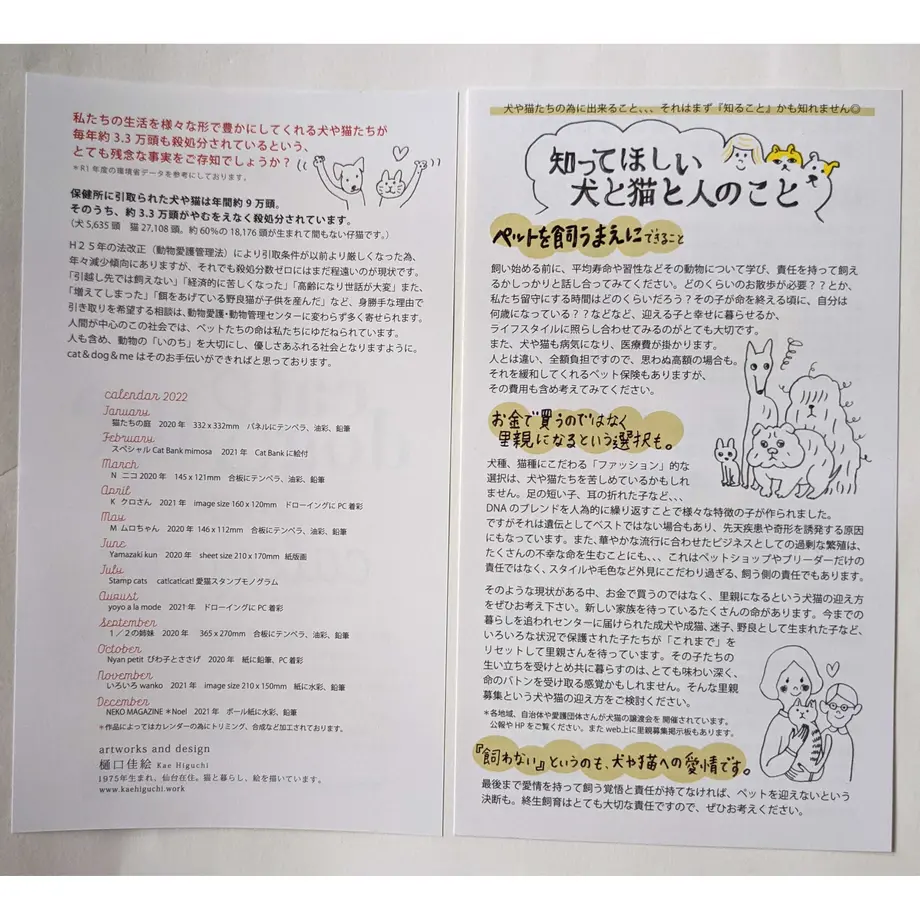 私たちの生活を様々な形で豊かにしてくれる犬や猫たちが
毎年約3.3万頭も殺処分されているという、
とても残念な事実をご存知でしょうか？
＊R1年度の環境省データを参考にしております。
保健所に引取られた犬や猫は年間約9万頭。
そのうち、約3.3万頭がやむをえなく殺処分されています。
（犬5,635頭　猫27,108頭。約60%の18,176頭が生まれて間もない仔猫です。）
H２５年の法改正（動物愛護管理法）により引取条件が以前より厳しくなった為、
年々減少傾向にありますが、それでも殺処分数ゼロにはまだ程遠いのが現状です。
「引越し先では飼えない」「経済的に苦しくなった」「高齢になり世話が大変」また、
「増えてしまった」「餌をあげている野良猫が子供を産んだ」など、身勝手な理由で
引き取りを希望する相談は、動物愛護・動物管理センターに変わらず多く寄せられます。
人間が中心のこの社会では、ペットたちの命は私たちにゆだねられています。
人も含め、動物の「いのち」を大切にし、優しさあふれる社会となりますように。
cat＆dog＆me はそのお手伝いができればと思っております。
calendar 2022
January
猫たちの庭　2020年　332 x 332mm　パネルにテンペラ、油彩、鉛筆
February
スペシャル Cat Bank mimosa　2021年　Cat Bank に絵付
March
N ニコ 2020年　145 x 121mm　合板にテンペラ、油彩、鉛筆
April
K クロさん　2021年　image size 160 x 120mm　ドローイングに PC 着彩
May
M ムロちゃん　2020年 146 x 112mm　合板にテンペラ、油彩、鉛筆
June
Yamazaki kun　2020年　sheet size 210 x 170mm　紙版画
July
Stamp cats　cat!cat!cat! 愛猫スタンプモノグラム
August
yoyo a la mode　2021年　ドローイングに PC 着彩
September
１／２の姉妹　2020年　365 x 270mm　合板にテンペラ、油彩、鉛筆
October
Nyan petit びわ子とささげ　2020年　紙に鉛筆、PC 着彩
November
いろいろ wanko　2021年　image size 210 x 150mm　紙に水彩、鉛筆
December
NEKO MAGAZINE ＊Noel　2021年　ボール紙に水彩、鉛筆
＊作品によってはカレンダーの為にトリミング、合成など加工されております。
artworks and design
樋口佳絵 Kae Higuchi
1975年生まれ。仙台在住。猫と暮らし、絵を描いています。
www.kaehiguchi.work
犬や猫たちの為に出来ること、、、それはまず『知ること』かも知れません◎
知ってほしい
犬と猫と人のこと
ペットを飼うまえにできること
飼い始める前に、平均寿命や習性などその動物について学び、責任を持って飼え
るかしっかりと話し合ってみてください。どのくらいのお散歩が必要？？とか、
私たち留守にする時間はどのくらいだろう？その子が命を終える頃に、自分は
何歳になっている？？などなど、迎える子と幸せに暮らせるか、
ライフスタイルに照らし合わせてみるのがとても大切です。
また、犬や猫も病気になり、医療費が掛かります。
人とは違い、全額負担ですので、思わぬ高額の場合も。
それを緩和してくれるペット保険もありますが、
その費用も含め考えてみてください。
お金で買うのではなく
里親になるという選択も。
犬種、猫種にこだわる「ファッション」的な
選択は、犬や猫たちを苦しめているかもしれ
ません。足の短い子、耳の折れた子など、、、
DNAのブレンドを人為的に繰り返すことで様々な特徴の子が作られました。
ですがそれは遺伝としてベストではない場合もあり、先天疾患や奇形を誘発する原因
にもなっています。また、華やかな流行に合わせたビジネスとしての過剰な繁殖は、
たくさんの不幸な命を生むことにも、、、これはペットショップやブリーダーだけの
責任ではなく、スタイルや毛色など外見にこだわり過ぎる、飼う側の責任でもあります。
そのような現状がある中、お金で買うのではなく、里親になるという犬猫の迎え方
をぜひお考え下さい。新しい家族を待っているたくさんの命があります。今までの
暮らしを追われセンターに届けられた成犬や成猫、迷子、野良として生まれた子など、
いろいろな状況で保護された子たちが「これまで」を
リセットして里親さんを待っています。その子たちの
生い立ちを受けとめ共に暮らすのは、とても味わい深く、
命のバトンを受け取る感覚かもしれません。そんな里親
募集という犬や猫の迎え方をご検討ください。
＊各地域、自治体や愛護団体さんが犬猫の譲渡会を開催されています。
公報や HP をご覧ください。また web上に里親募集掲示板もあります。
『飼わない』というのも、犬や猫への愛情です。
最後まで愛情を持って飼う覚悟と責任が持てなければ、ペットを迎えないという
決断も。終生飼育はとても大切な責任ですので、ぜひお考えください。